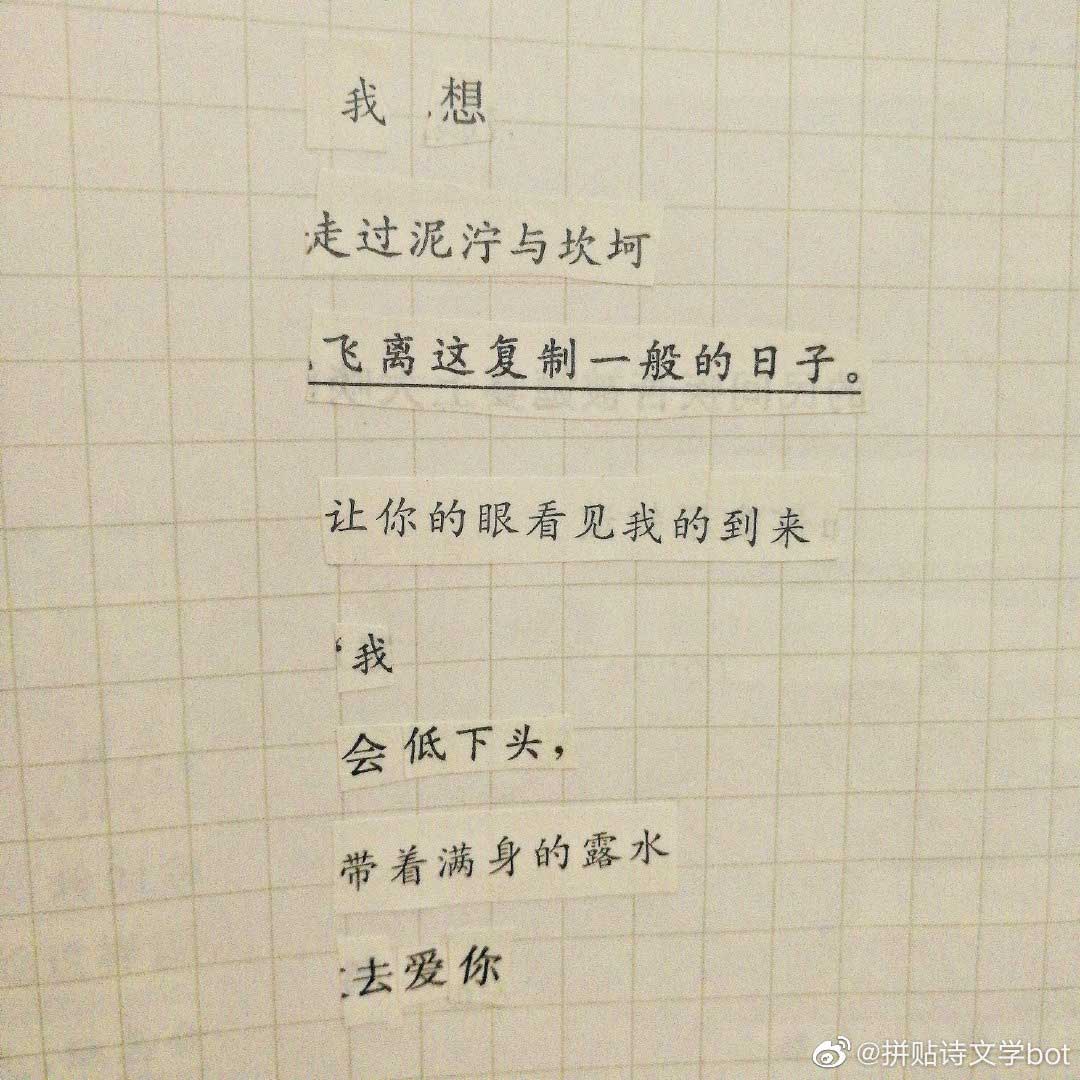 我想
走过泥泞与坎坷
飞离这复制一般的日子。
让你的眼看见我的到来
‘我
会低下头，
带着满身的露水
去爱你
@拼贴诗文学bot